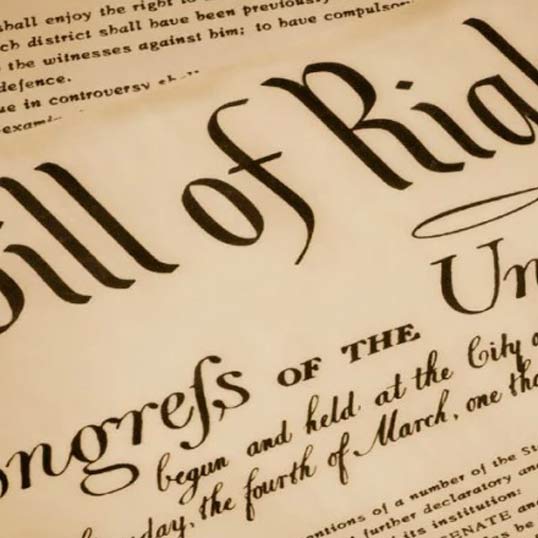 shall enjoy the right to
ch district shall have been previously
the witnesses against him; to have compulsor
defence.
ue in controversy shall
exami
Bill of Rig
Un
ongreſs OF THE
begun and held at the City o
day, the fourth of March, one tho
entions of a number of the Sta
further declaratory and
its institution:
SENATE and
be